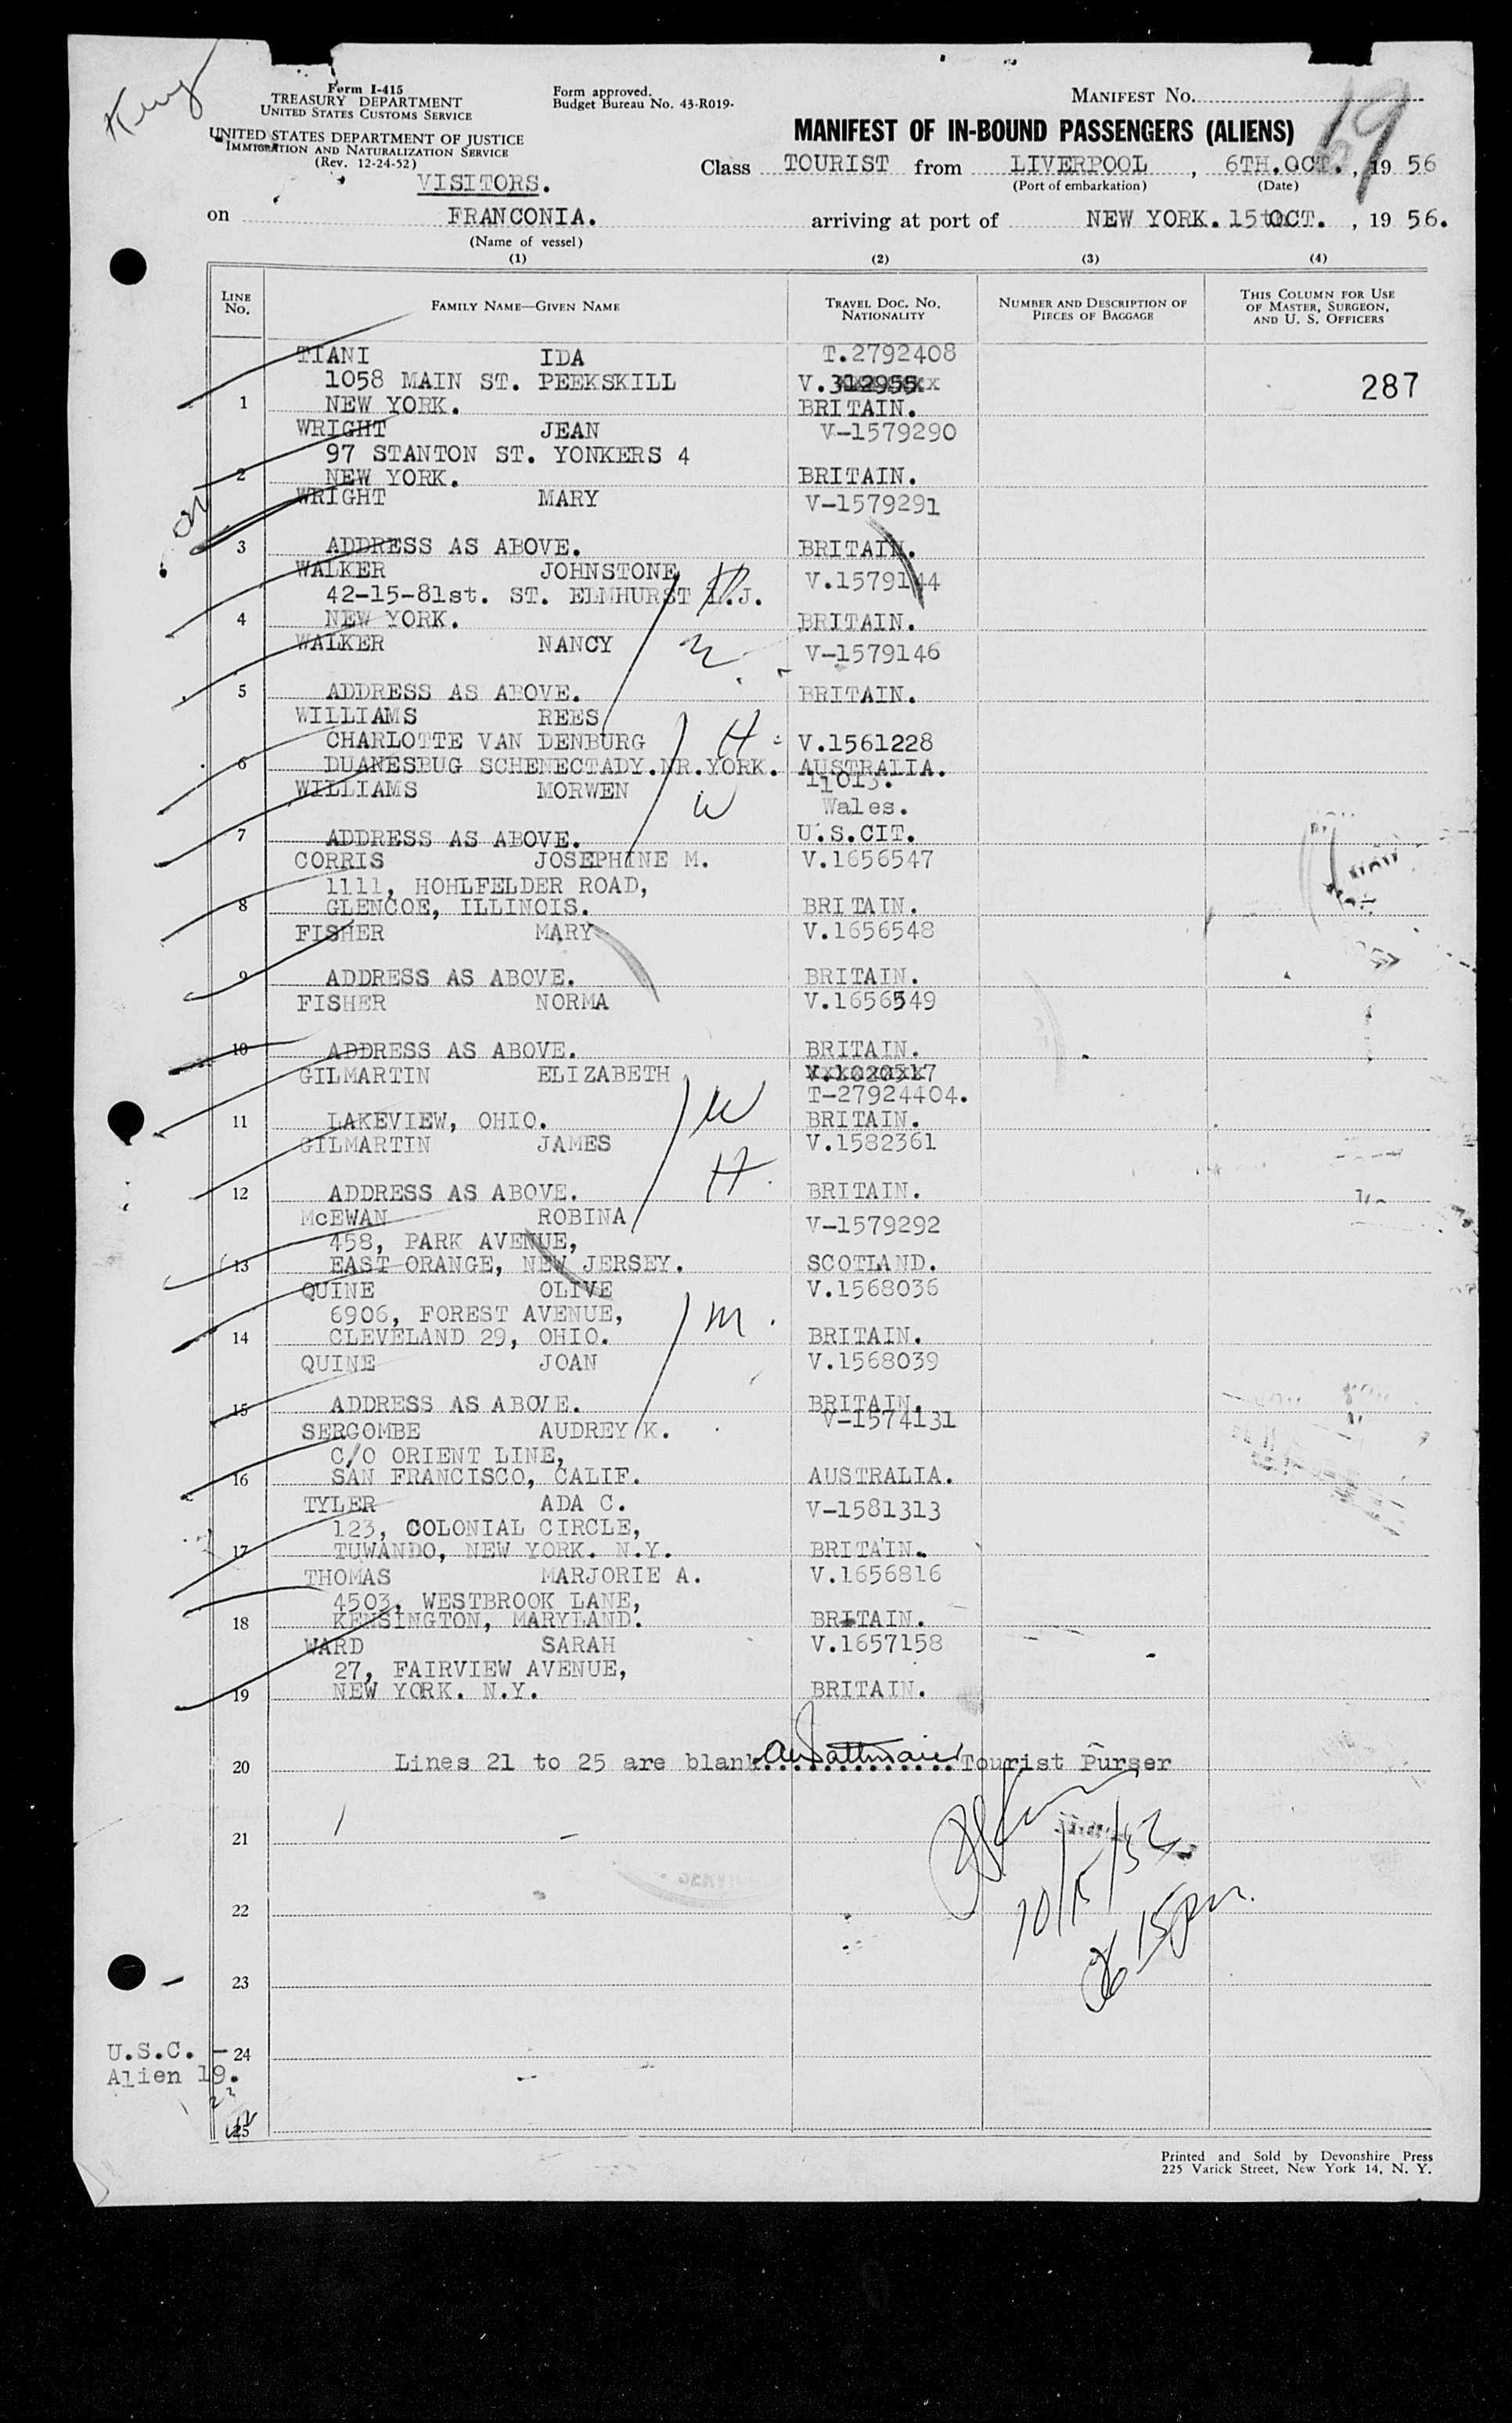 Form I-415
TREASURY DEPARTMENT
UNITED STATES CUSTOMS SERVICE
UNITED STATES DEPARTMENT OF JUSTICE
IMMIGRATION AND NATURALIZATION SERVICE
(Rev. 12-24-52)
VISITORS.
Form approved.
Budget Bureau No. 43-R019-
MANIFEST NO.
MANIFEST OF IN-BOUND PASSENGERS (ALIENS)
Class TOURIST from LIVERPOOL, 6TH.OCT., 19 56
(Port of embarkation) (Date)
on FRANCONIA. arriving at port of NEW YORK. 15th OCT., 19 56.
(Name of vessel)
(1) (2) (3) (4)
LINE No. FAMILY NAME—GIVEN NAME TRAVEL DOC. NO. NATIONALITY NUMBER AND DESCRIPTION OF PIECES OF BAGGAGE THIS COLUMN FOR USE OF MASTER, SURGEON, AND U. S. OFFICERS
TIANI IDA T.2792408
1058 MAIN ST. PEEKSKILL V.312955 287
1 NEW YORK. BRITAIN.
WRIGHT JEAN V-1579290
97 STANTON ST. YONKERS 4
2 NEW YORK. BRITAIN.
WRIGHT MARY V-1579291
3 ADDRESS AS ABOVE. BRITAIN.
WALKER JOHNSTONE H V.1579144
42-15-81st. ST. ELMHURST L.J.
4 NEW YORK. BRITAIN.
WALKER NANCY W V-1579146
5 ADDRESS AS ABOVE. BRITAIN.
WILLIAMS REES
CHARLOTTE VAN DENBURG H V.1561228
6 DUANESBUG SCHENECTADY.NR.YORK. AUSTRALIA.
WILLIAMS MORWEN W 11013.
Wales.
7 ADDRESS AS ABOVE. U.S.CIT.
CORRIS JOSEPHINE M. V.1656547
1111, HOHLFELDER ROAD,
8 GLENCOE, ILLINOIS. BRITAIN.
FISHER MARY V.1656548
9 ADDRESS AS ABOVE. BRITAIN.
FISHER NORMA V.1656549
10 ADDRESS AS ABOVE. BRITAIN.
GILMARTIN ELIZABETH V.1020517
W T-27924404.
11 LAKEVIEW, OHIO. BRITAIN.
GILMARTIN JAMES V.1582361
H.
12 ADDRESS AS ABOVE. BRITAIN.
McEWAN ROBINA V-1579292
458, PARK AVENUE,
13 EAST ORANGE, NEW JERSEY. SCOTLAND.
QUINE OLIVE V.1568036
6906, FOREST AVENUE, M.
14 CLEVELAND 29, OHIO. BRITAIN.
QUINE JOAN V.1568039
15 ADDRESS AS ABOVE. BRITAIN.
SERCOMBE AUDREY K. V-1574131
C/O ORIENT LINE,
16 SAN FRANCISCO, CALIF. AUSTRALIA.
TYLER ADA C. V-1581313
123, COLONIAL CIRCLE,
17 TUWANDO, NEW YORK. N.Y. BRITAIN.
THOMAS MARJORIE A. V.1656816
4503, WESTBROOK LANE,
18 KENSINGTON, MARYLAND. BRITAIN.
WARD SARAH V.1657158
27, FAIRVIEW AVENUE,
19 NEW YORK. N.Y. BRITAIN.
20 Lines 21 to 25 are blank. Tourist Purser
21
22
23
U.S.C. - 24
Alien 19.
25
Printed and Sold by Devonshire Press
225 Varick Street, New York 14, N. Y.